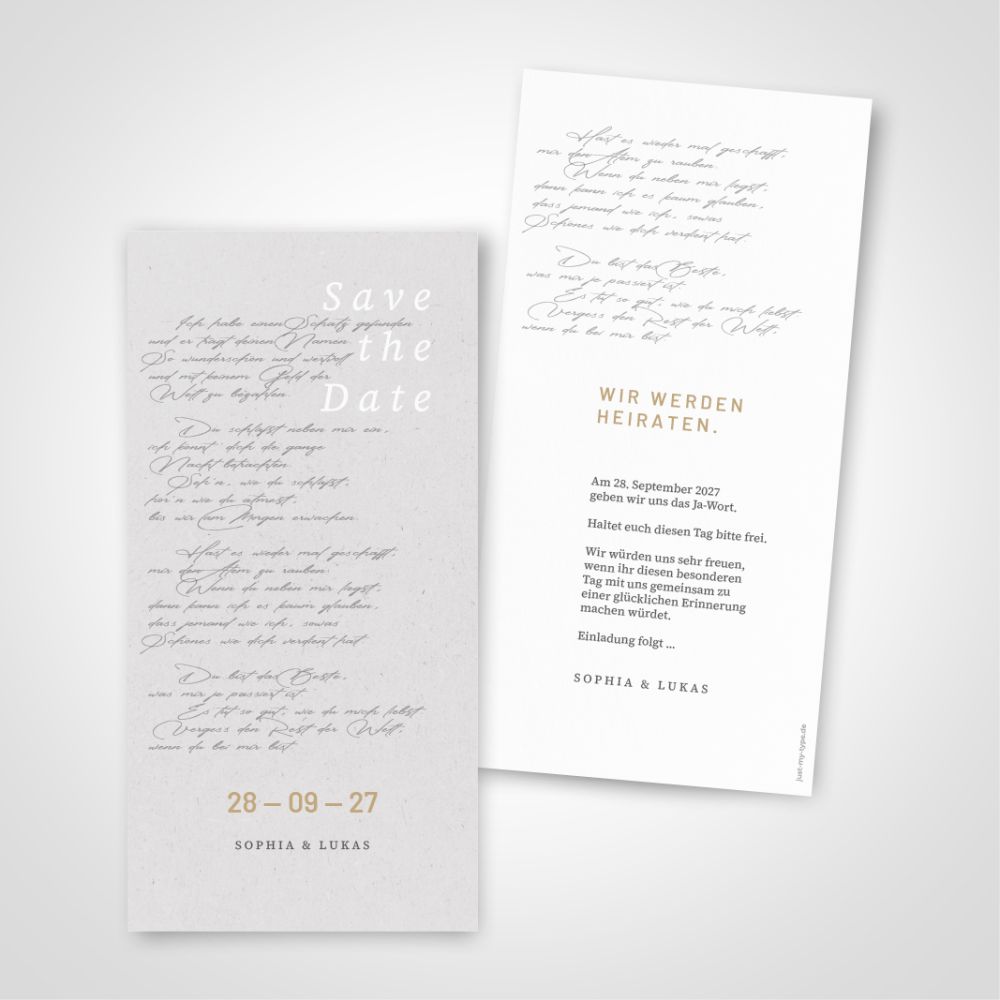 Save
the
Date
Ich habe einen Schatz gefunden
und er trägt deinen Namen.
So wunderschön und wertvoll
und mit keinem Geld der
Welt zu bezahlen.
Du schläfst neben mir ein,
ich könnt' dich die ganze
Nacht betrachten.
Seh'n, wie du schläfst,
hör'n wie du atmest,
bis wir am Morgen erwachen.
Hast es wieder mal geschafft,
mir den Atem zu rauben.
Wenn du neben mir liegst,
dann kann ich es kaum glauben,
dass jemand wie ich, sowas
Schönes wie dich verdient hat.
Du bist das Beste,
was mir je passiert ist.
Es tut so gut, wie du mich liebst.
Vergess den Rest der Welt,
wenn du bei mir bist.
28 – 09 – 27
SOPHIA & LUKAS
Hast es wieder mal geschafft,
mir den Atem zu rauben.
Wenn du neben mir liegst,
dann kann ich es kaum glauben,
dass jemand wie ich, sowas
Schönes wie dich verdient hat.
Du bist das Beste,
was mir je passiert ist.
Es tut so gut, wie du mich liebst.
Vergess den Rest der Welt,
wenn du bei mir bist.
WIR WERDEN
HEIRATEN.
Am 28. September 2027
geben wir uns das Ja-Wort.
Haltet euch diesen Tag bitte frei.
Wir würden uns sehr freuen,
wenn ihr diesen besonderen
Tag mit uns gemeinsam zu
einer glücklichen Erinnerung
machen würdet.
Einladung folgt ...
SOPHIA & LUKAS
just-my-type.de